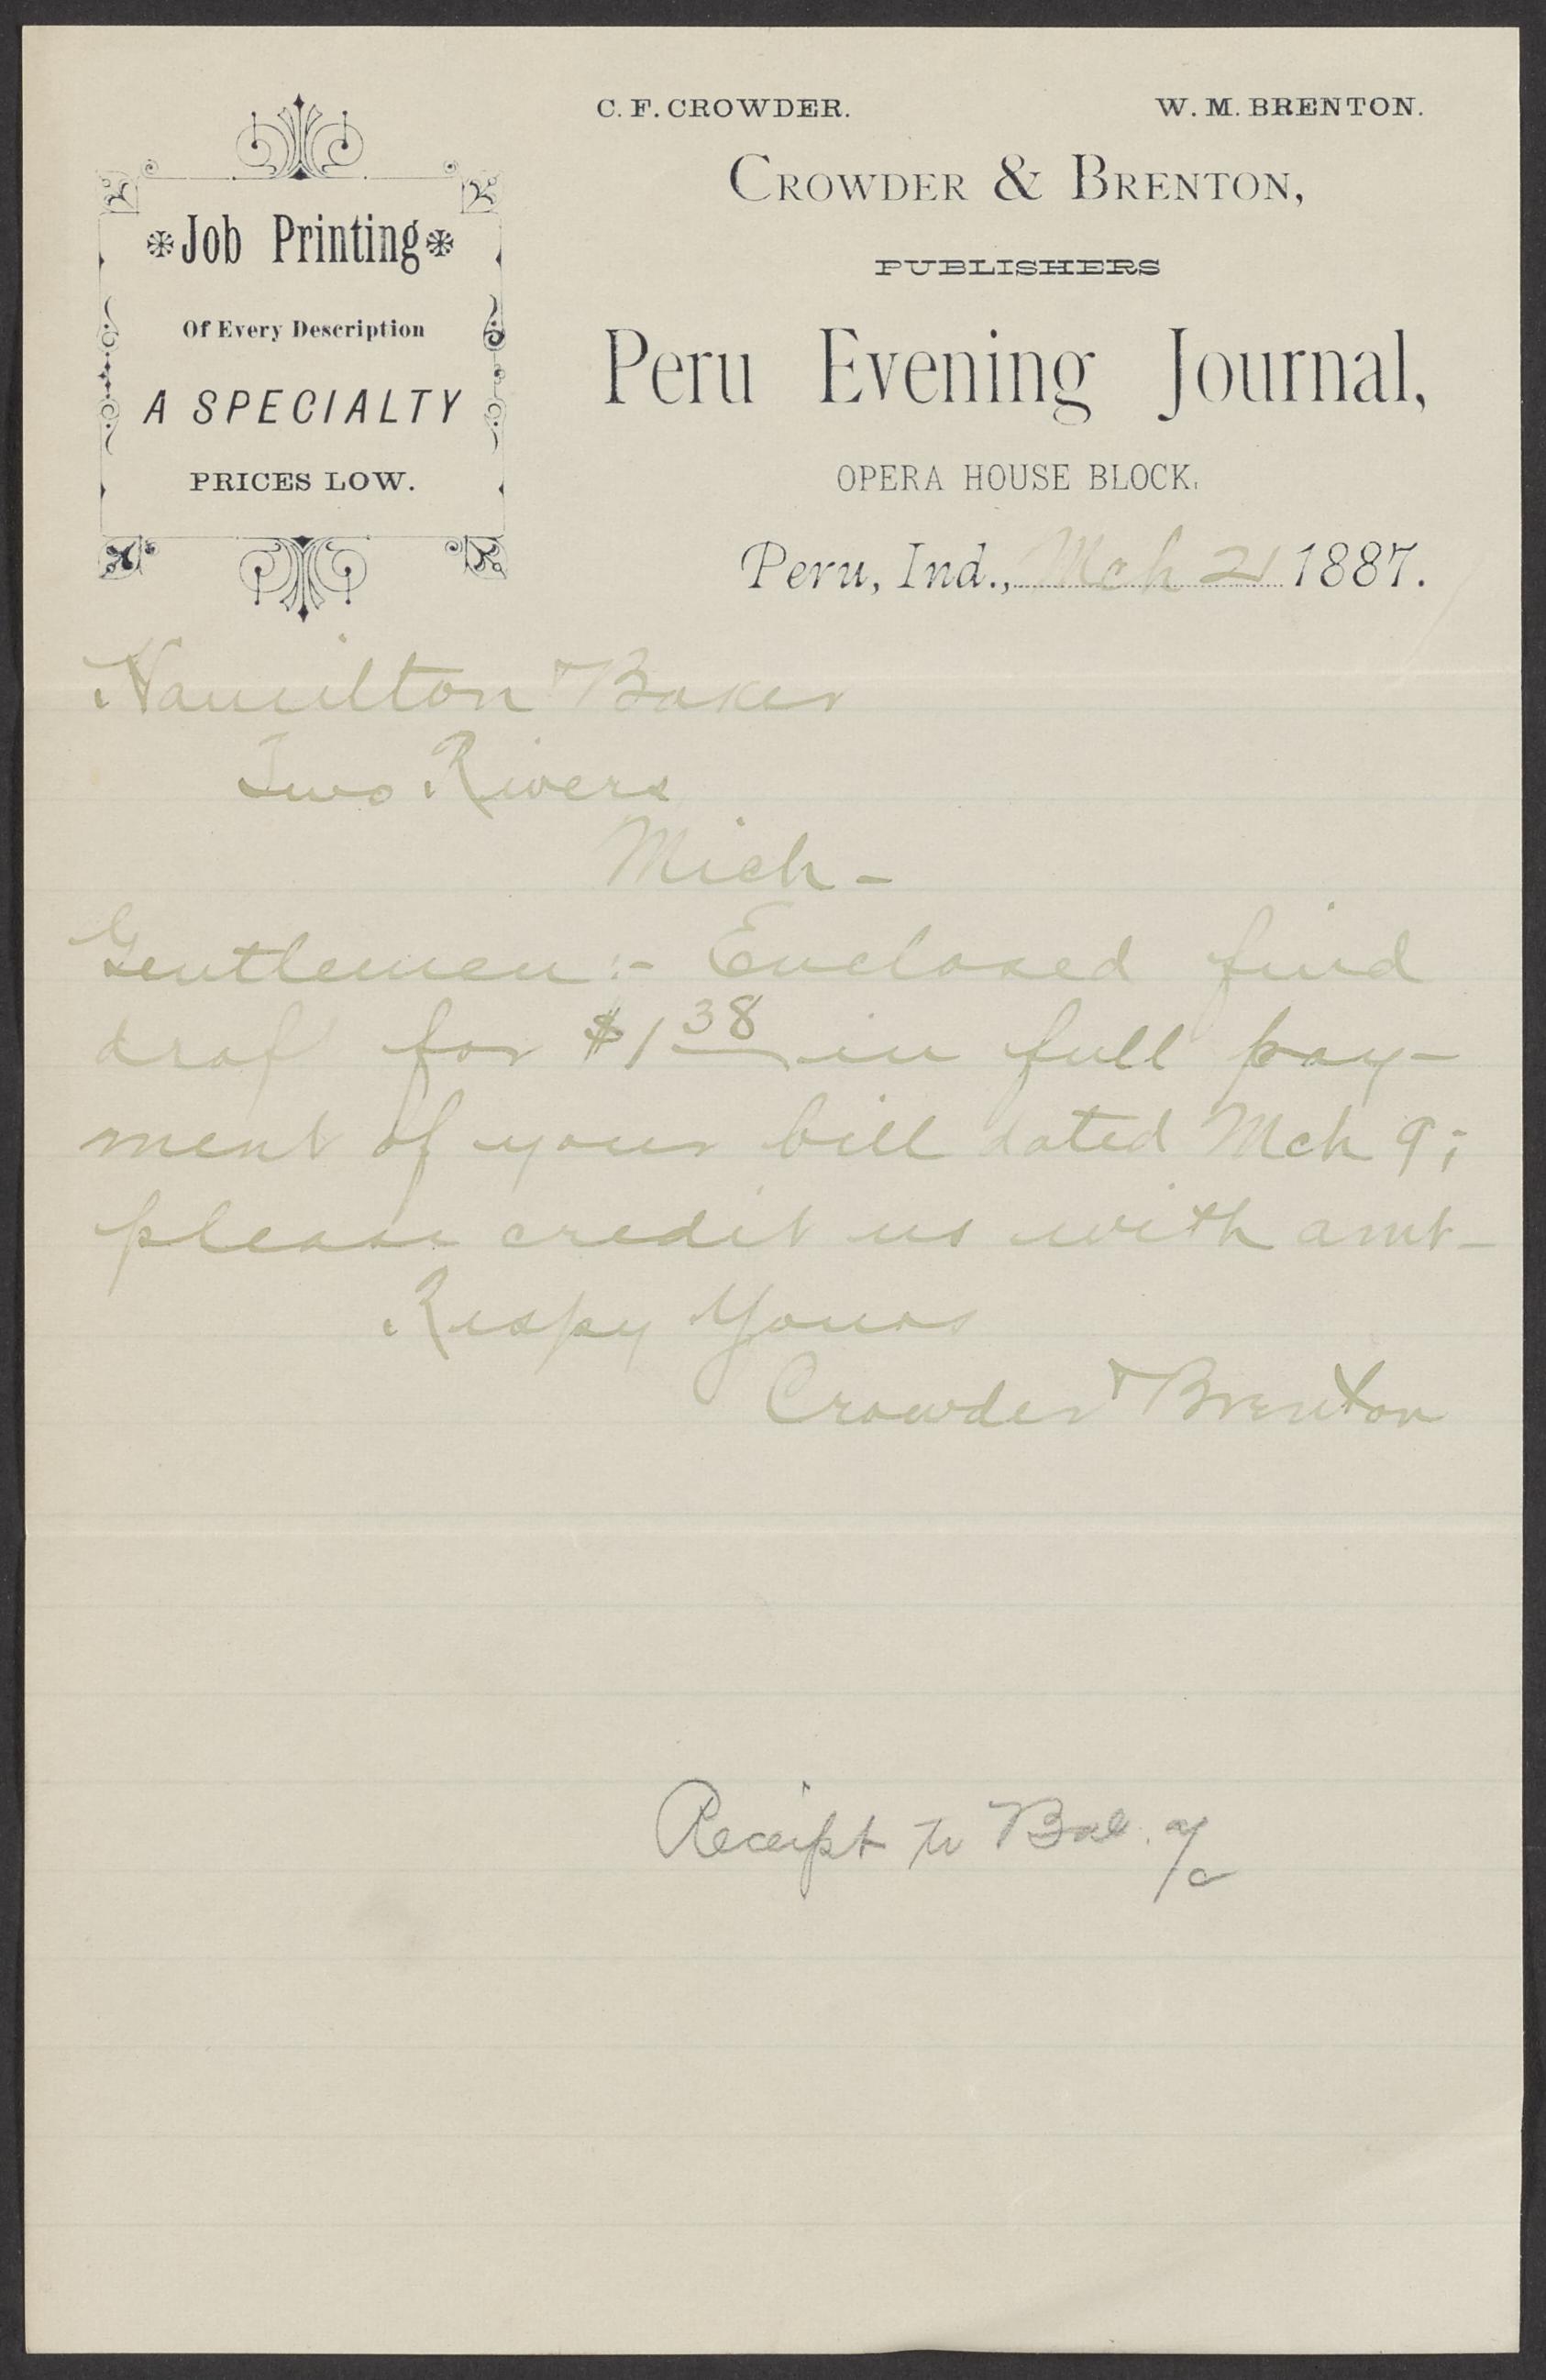 C. F. CROWDER. W. M. BRENTON.
CROWDER & BRENTON,
PUBLISHERS
Peru Evening Journal,
OPERA HOUSE BLOCK.
Peru, Ind., Mch 21 1887.
*Job Printing*
Of Every Description
A SPECIALTY
PRICES LOW.
Hamilton & Baker
Two Rivers
Mich -
Gentlemen :- Enclosed find
draf for $1 38 in full pay-
ment of your bill dated Mch 9;
please credit us with amt -
Respy Yours
Crowder & Brenton
Receipt to Bal. a/c